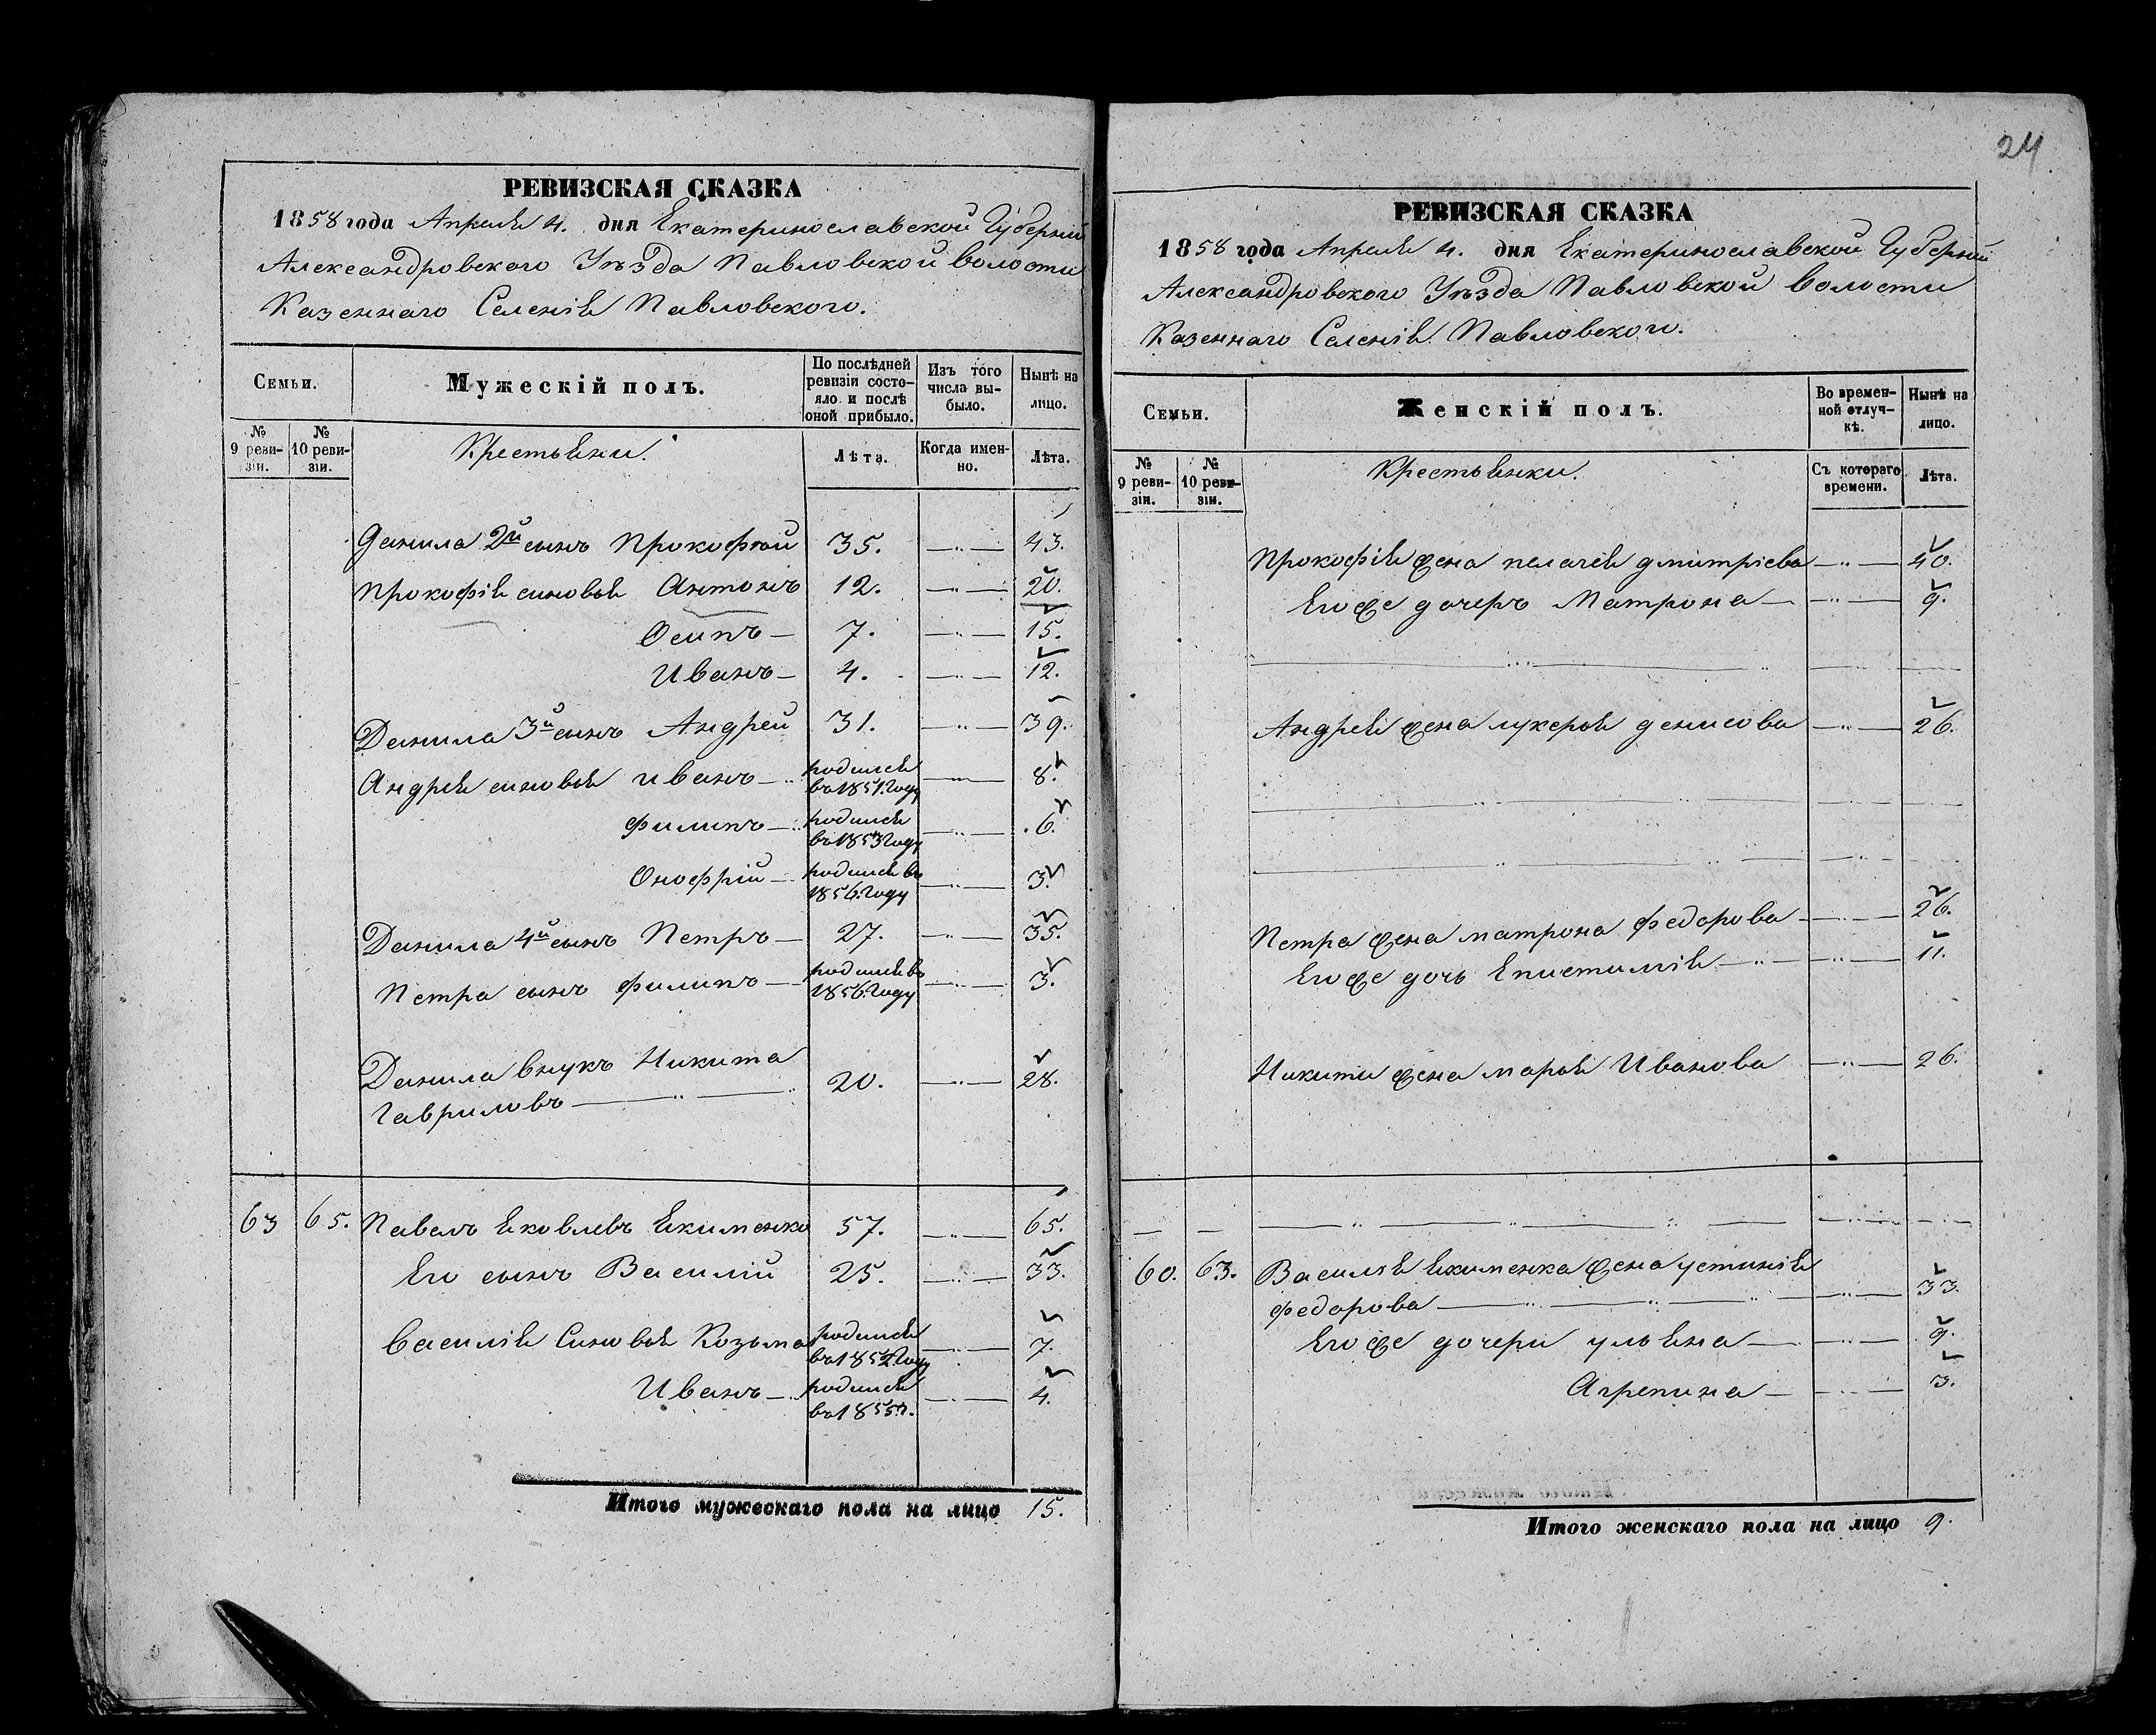 РЕВИЗСКАЯ СКАЗКА
1858 года Апреля 4. дня Екатеринославской Губерніи
Александровского Уѣзда Павловской волости
Казеннаго Селенія Павловского.
Семьи.
Мужескій полъ.
По послѣдней ревизіи состояло и послѣ оной прибыло.
Изъ того числа выбыло.
Нынѣ на лицо.
№ 9 ревизіи.
№ 10 ревизіи.
Крестьяни.
Лѣта.
Когда именно.
Лѣта.
Данила 2й сынъ Прокофій 35. —"— 43.
Прокофія синовья Антонъ 12. —"— 20.
Осипъ — 7. —"— 15.
Иванъ — 4. —"— 12.
Данила 3й сынъ Андрей 31. —"— 39.
Андрея синовья иванъ — родился въ 1851. Году —"— 8.
филипъ — родился въ 1853 Году —"— 6.
Онофрій — родился въ 1856. Году —"— 3.
Данила 4й сынъ Петръ — 27. —"— 35.
Петра сынъ филипъ — родился въ 1856. Году —"— 3.
Данила внукъ Никита
Гавриловъ — " — 20. —"— 28.
63 65. Павелъ Яковлевъ Якименко 57. —"— 65.
Его сынъ Василій 25. —"— 33.
Василія Синовья Козьма родился въ 1852 Году —"— 7.
Иванъ — родился въ 1855 г. —"— 4.
Итого мужескаго пола на лицо 15.
24
РЕВИЗСКАЯ СКАЗКА
1858 года Апреля 4. дня Екатеринославской Губерніи
Александровского Уѣзда Павловской Волости
Казеннаго Селенія Павловского.
Семьи.
Женскій полъ.
Во временной отлучкѣ.
Нынѣ на лицо.
№ 9 ревизіи.
№ 10 ревизіи.
Крестьянки.
Съ котораго времени.
Лѣта.
Прокофія жена пелагея дмитріева —"— 40.
Его же дочеръ Матрона — —"— 9.
Андрея жена лукерья денисова —"— 26.
Петра жена матрона федорова —"— 26.
Его же дочь Епистимія —"— 11.
Никити жена марья Иванова —"— 26.
60. 63. Василія якименка жена устинія
федорова — " — 33.
Его же дочери ульяна — —"— 9.
Агрепина — —"— 3.
Итого женскаго пола на лицо 9.